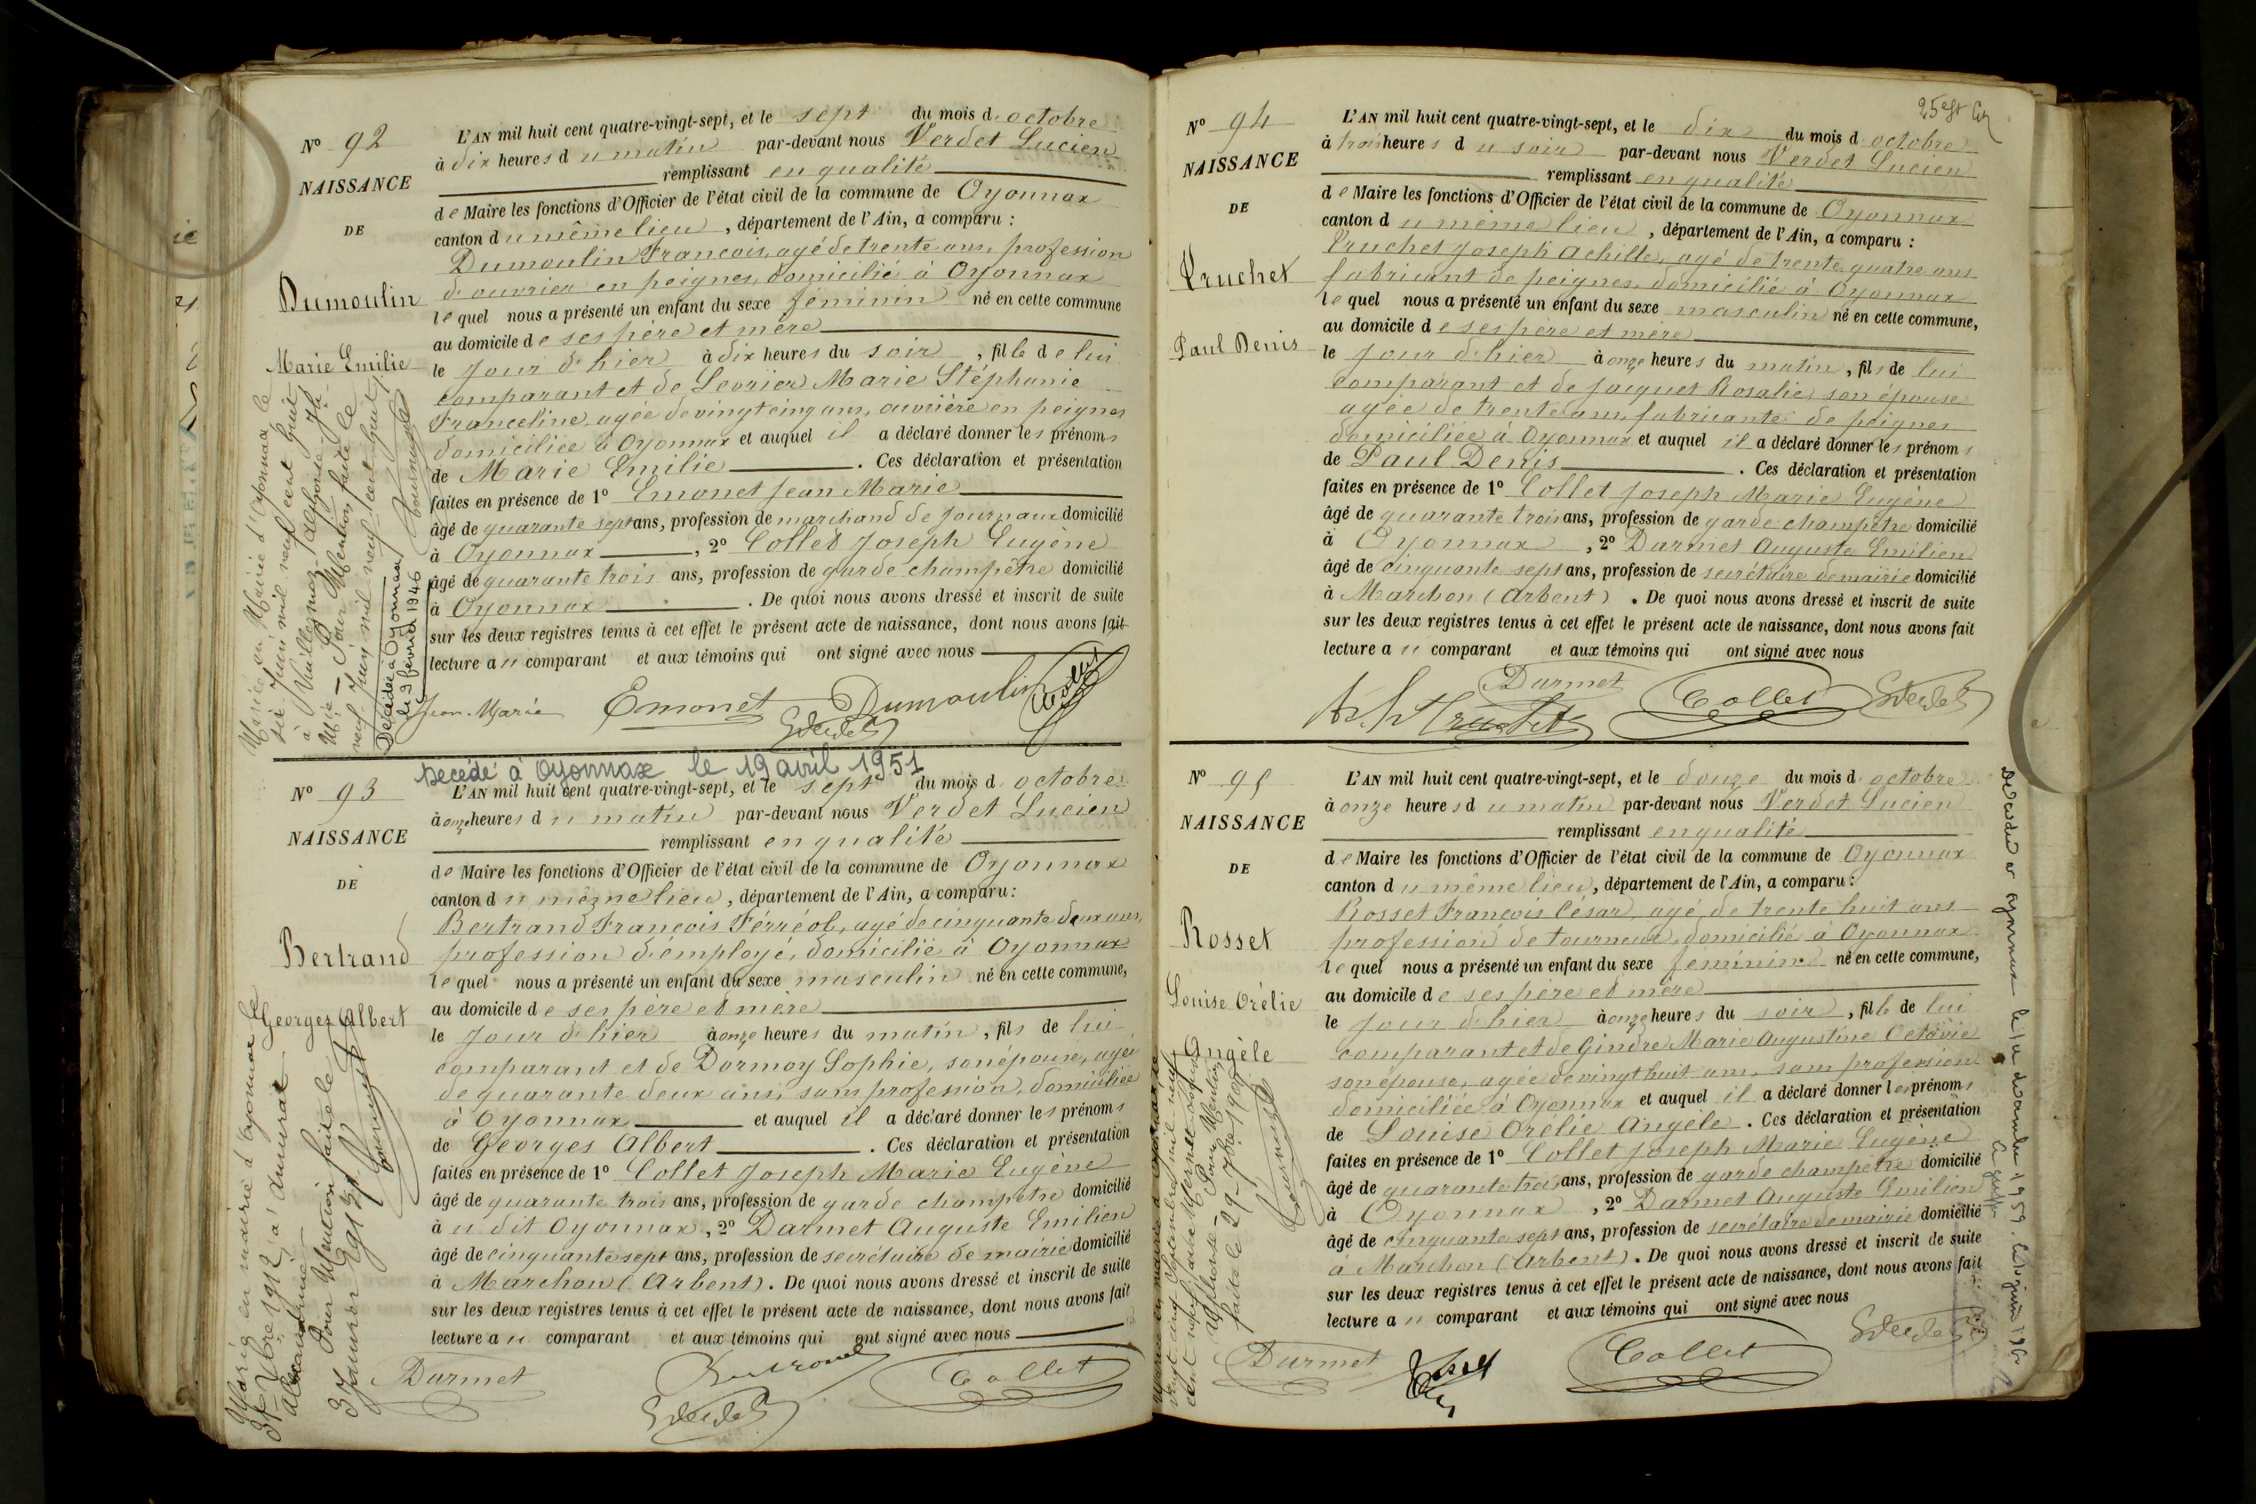 Nº 92
NAISSANCE
DE
Dumoulin
Marie Emilie
L'AN mil huit cent quatre-vingt-sept, et le sept du mois d'octobre
à dix heures du matin par-devant nous Verdet Lucien
remplissant en qualité
de Maire les fonctions d'Officier de l'état civil de la commune de Oyonnax
canton du même lieu, département de l'Ain, a comparu :
Dumoulin François, agé de trente ans, profession
d'ouvrier en peignes, domicilié à Oyonnax
lequel nous a présenté un enfant du sexe féminin né en cette commune
au domicile de ses père et mère
le jour d'hier à dix heures du soir, fille de lui
comparant et de Levrier Marie Stéphanie
Franceline, agée de vingt cinq ans, ouvrière en peignes
domiciliée à Oyonnax et auquel il a déclaré donner les prénoms
de Marie Emilie. Ces déclaration et présentation
faites en présence de 1º Emonet Jean Marie
âgé de quarante sept ans, profession de marchand de journaux domicilié
à Oyonnax, 2º Collet Joseph Eugène
âgé de quarante trois ans, profession de garde champêtre domicilié
à Oyonnax. De quoi nous avons dressé et inscrit de suite
sur les deux registres tenus à cet effet le présent acte de naissance, dont nous avons fait
lecture au comparant et aux témoins qui ont signé avec nous
Jean Marie Emonet Dumoulin Collet
Verdet
Mariée en Mairie d'Oyonnax le
six Juin mil neuf cent huit
à Vuillermoz
Mie - Pour Mention faite le
neuf Juin mil neuf cent huit
Décédée à Oyonnax
le 3 février 1946
Nº 93
NAISSANCE
DE
Bertrand
Georges Albert
Décédé à Oyonnax le 19 avril 1951
L'AN mil huit cent quatre-vingt-sept, et le sept du mois d'octobre
à onze heures du matin par-devant nous Verdet Lucien
remplissant en qualité
de Maire les fonctions d'Officier de l'état civil de la commune de Oyonnax
canton du même lieu, département de l'Ain, a comparu :
Bertrand François Férréol, agé de cinquante deux ans,
profession d'employé, domicilié à Oyonnax
lequel nous a présenté un enfant du sexe masculin né en cette commune,
au domicile de ses père et mère
le jour d'hier à onze heures du matin, fils de lui
comparant et de Dormoy Sophie, son épouse, agée
de quarante deux ans, sans profession, domiciliée
à Oyonnax et auquel il a déclaré donner les prénoms
de Georges Albert. Ces déclaration et présentation
faites en présence de 1º Collet Joseph Marie Eugène
âgé de quarante trois ans, profession de garde champêtre domicilié
à u dit Oyonnax, 2º Darmet Auguste Emilien
âgé de cinquante sept ans, profession de secrétaire de mairie domicilié
à Marchon (Arbent). De quoi nous avons dressé et inscrit de suite
sur les deux registres tenus à cet effet le présent acte de naissance, dont nous avons fait
lecture au comparant et aux témoins qui ont signé avec nous
Darmet Bertrand Collet
Verdet
Marié en mairie d'Oyonnax le
1912, à
Alexandrine
Pour Mention faite le
3 Janvier
25
Nº 94
NAISSANCE
DE
Pruchet
Paul Denis
L'AN mil huit cent quatre-vingt-sept, et le dix du mois d'octobre
à trois heures du soir par-devant nous Verdet Lucien
remplissant en qualité
de Maire les fonctions d'Officier de l'état civil de la commune de Oyonnax
canton du même lieu, département de l'Ain, a comparu :
Pruchet Joseph Achille, agé de trente quatre ans
fabricant de peignes, domicilié à Oyonnax
lequel nous a présenté un enfant du sexe masculin né en cette commune,
au domicile de ses père et mère
le jour d'hier à onze heures du matin, fils de lui
comparant et de Jacquet Rosalie, son épouse
agée de trente ans, fabricante de peignes
domiciliée à Oyonnax et auquel il a déclaré donner les prénoms
de Paul Denis. Ces déclaration et présentation
faites en présence de 1º Collet Joseph Marie Eugène
âgé de quarante trois ans, profession de garde champêtre domicilié
à Oyonnax, 2º Darmet Auguste Emilien
âgé de cinquante sept ans, profession de secrétaire de mairie domicilié
à Marchon (Arbent). De quoi nous avons dressé et inscrit de suite
sur les deux registres tenus à cet effet le présent acte de naissance, dont nous avons fait
lecture au comparant et aux témoins qui ont signé avec nous
Darmet
Pruchet Collet Verdet
Nº 95
NAISSANCE
DE
Rosset
Louise Orélie
Angèle
L'AN mil huit cent quatre-vingt-sept, et le douze du mois d'octobre
à onze heures du matin par-devant nous Verdet Lucien
remplissant en qualité
de Maire les fonctions d'Officier de l'état civil de la commune de Oyonnax
canton du même lieu, département de l'Ain, a comparu :
Rosset François César, agé de trente huit ans
profession de tourneur, domicilié à Oyonnax
lequel nous a présenté un enfant du sexe féminin né en cette commune,
au domicile de ses père et mère
le jour d'hier à onze heures du soir, fille de lui
comparant et de Gindre Marie Augustine Octavie
son épouse, agée de vingt huit ans, sans profession
domiciliée à Oyonnax et auquel il a déclaré donner les prénoms
de Louise Orélie Angèle. Ces déclaration et présentation
faites en présence de 1º Collet Joseph Marie Eugène
âgé de quarante trois ans, profession de garde champêtre domicilié
à Oyonnax, 2º Darmet Auguste Emilien
âgé de cinquante sept ans, profession de secrétaire de mairie domicilié
à Marchon (Arbent). De quoi nous avons dressé et inscrit de suite
sur les deux registres tenus à cet effet le présent acte de naissance, dont nous avons fait
lecture au comparant et aux témoins qui ont signé avec nous
Darmet Rosset Collet Verdet
Mariée en mairie d'Oyonnax le
vingt cinq Septembre mil neuf
cent neuf
Pour Mention
faite le 29
Décédée à Oyonnax le décembre 1959